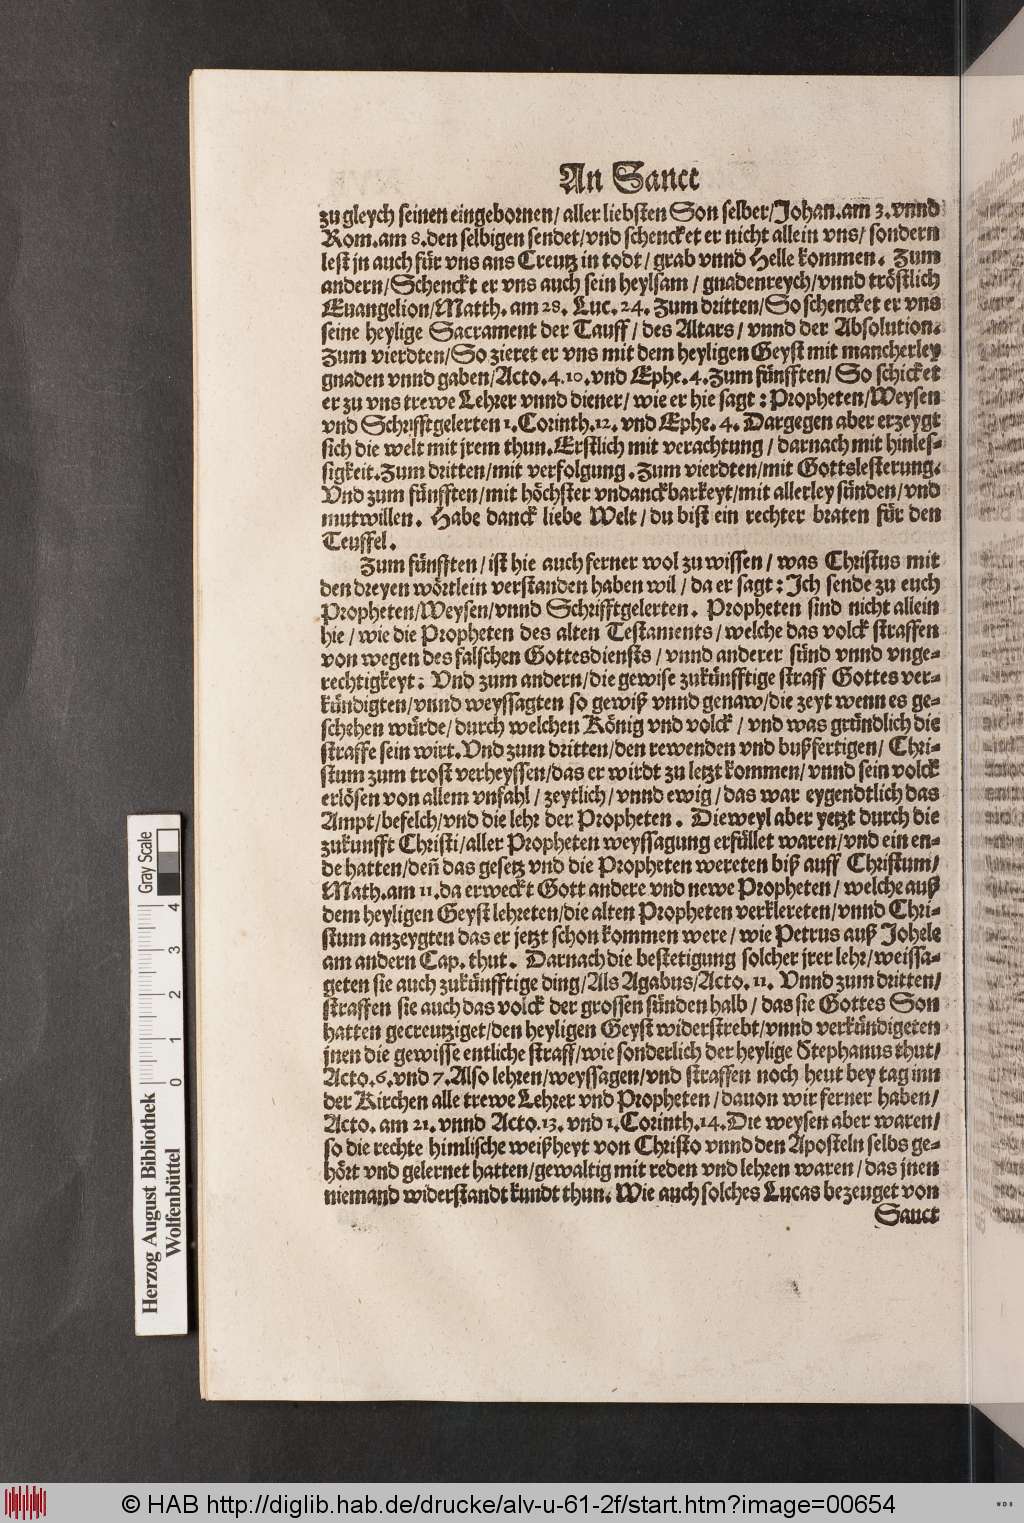 An Sanct
zu gleych seinen eingebornen/ aller liebsten Son selber/ Johan. am 3. vnnd
Rom. am 8. den selbigen sendet/ vnd schencket er nicht allein vns/ sondern
lest jn auch für vns ans Creutz in todt/ grab vnnd Helle kommen. Zum
andern/ Schenckt er vns auch sein heylsam/ gnadenreych/ vnnd tröstlich
Euangelion/ Matth. am 28. Luc. 24. Zum dritten/ So schencket er vns
seine heylige Sacrament der Tauff/ des Altars/ vnnd der Absolution.
Zum vierdten/ So zieret er vns mit dem heyligen Geyst mit mancherley
gnaden vnnd gaben/ Acto. 4. 10. vnd Ephe. 4. Zum fünfften/ So schicket
er zu vns trewe Lehrer vnnd diener/ wie er hie sagt: Propheten/ Weysen
vnd Schrifftgelerten 1. Corinth. 12. vnd Ephe. 4. Dargegen aber erzeygt
sich die welt mit jrem thun. Erstlich mit verachtung/ darnach mit hinles-
sigkeit. Zum dritten/ mit verfolgung. Zum vierdten/ mit Gottslesterung.
Vnd zum fünfften/ mit höchster vndanckbarkeyt/ mit allerley sünden/ vnd
mutwillen. Habe danck liebe Welt/ du bist ein rechter braten für den
Teuffel.
Zum fünfften/ ist hie auch ferner wol zu wissen/ was Christus mit
den dreyen wörtlein verstanden haben wil/ da er sagt: Ich sende zu euch
Propheten/ Weysen/ vnnd Schrifftgelerten. Propheten sind nicht allein
hie/ wie die Propheten des alten Testaments/ welche das volck straffen
von wegen des falschen Gottesdiensts/ vnnd anderer sünd vnnd vnge-
rechtigkeyt: Vnd zum andern/ die gewise zukünfftige straff Gottes ver-
kündigten/ vnnd weyssagten so gewiß vnnd genaw/ die zeyt wenn es ge-
schehen würde/ durch welchen König vnd volck/ vnd was gründlich die
straffe sein wirt. Vnd zum dritten/ den rewenden vnd bußfertigen/ Chri-
stum zum trost verheyssen/ das er wirdt zu letzt kommen/ vnnd sein volck
erlösen von allem vnfahl/ zeytlich/ vnnd ewig/ das war eygendtlich das
Ampt/ befelch/ vnd die lehr der Propheten. Dieweyl aber yetzt durch die
zukunfft Christi/ aller Propheten weyssagung erfüllet waren/ vnd ein en-
de hatten/ deñ das gesetz vnd die Propheten wereten biß auff Christum/
Math. am 11. da erweckt Gott andere vnd newe Propheten/ welche auß
dem heyligen Geyst lehreten/ die alten Propheten verklereten/ vnnd Chri-
stum anzeygten das er jetzt schon kommen were/ wie Petrus auß Johele
am andern Cap. thut. Darnach die bestetigung solcher jrer lehr/ weissa-
geten sie auch zukünfftige ding/ Als Agabus/ Acto. 11. Vnnd zum dritten/
straffen sie auch das volck der grossen sünden halb/ das sie Gottes Son
hatten gecreutziget/ den heyligen Geyst widerstrebt/ vnnd verkündigeten
jnen die gewisse entliche straff/ wie sonderlich der heylige Stephanus thut/
Acto. 6. vnd 7. Also lehren/ weyssagen/ vnd straffen noch heut bey tag inn
der Kirchen alle trewe Lehrer vnd Propheten/ dauon wir ferner haben/
Acto. am 21. vnnd Acto. 13. vnd 1. Corinth. 14. Die weysen aber waren/
so die rechte himlische weißheyt von Christo vnnd den Aposteln selbs ge-
hört vnd gelernet hatten/ gewaltig mit reden vnd lehren waren/ das jnen
niemand widerstandt kundt thun. Wie auch solches Lucas bezeuget von
Sanct
Gray Scale
0 1 2 3 4
Herzog August Bibliothek
Wolfenbüttel
© HAB http://diglib.hab.de/drucke/alv-u-61-2f/start.htm?image=00654